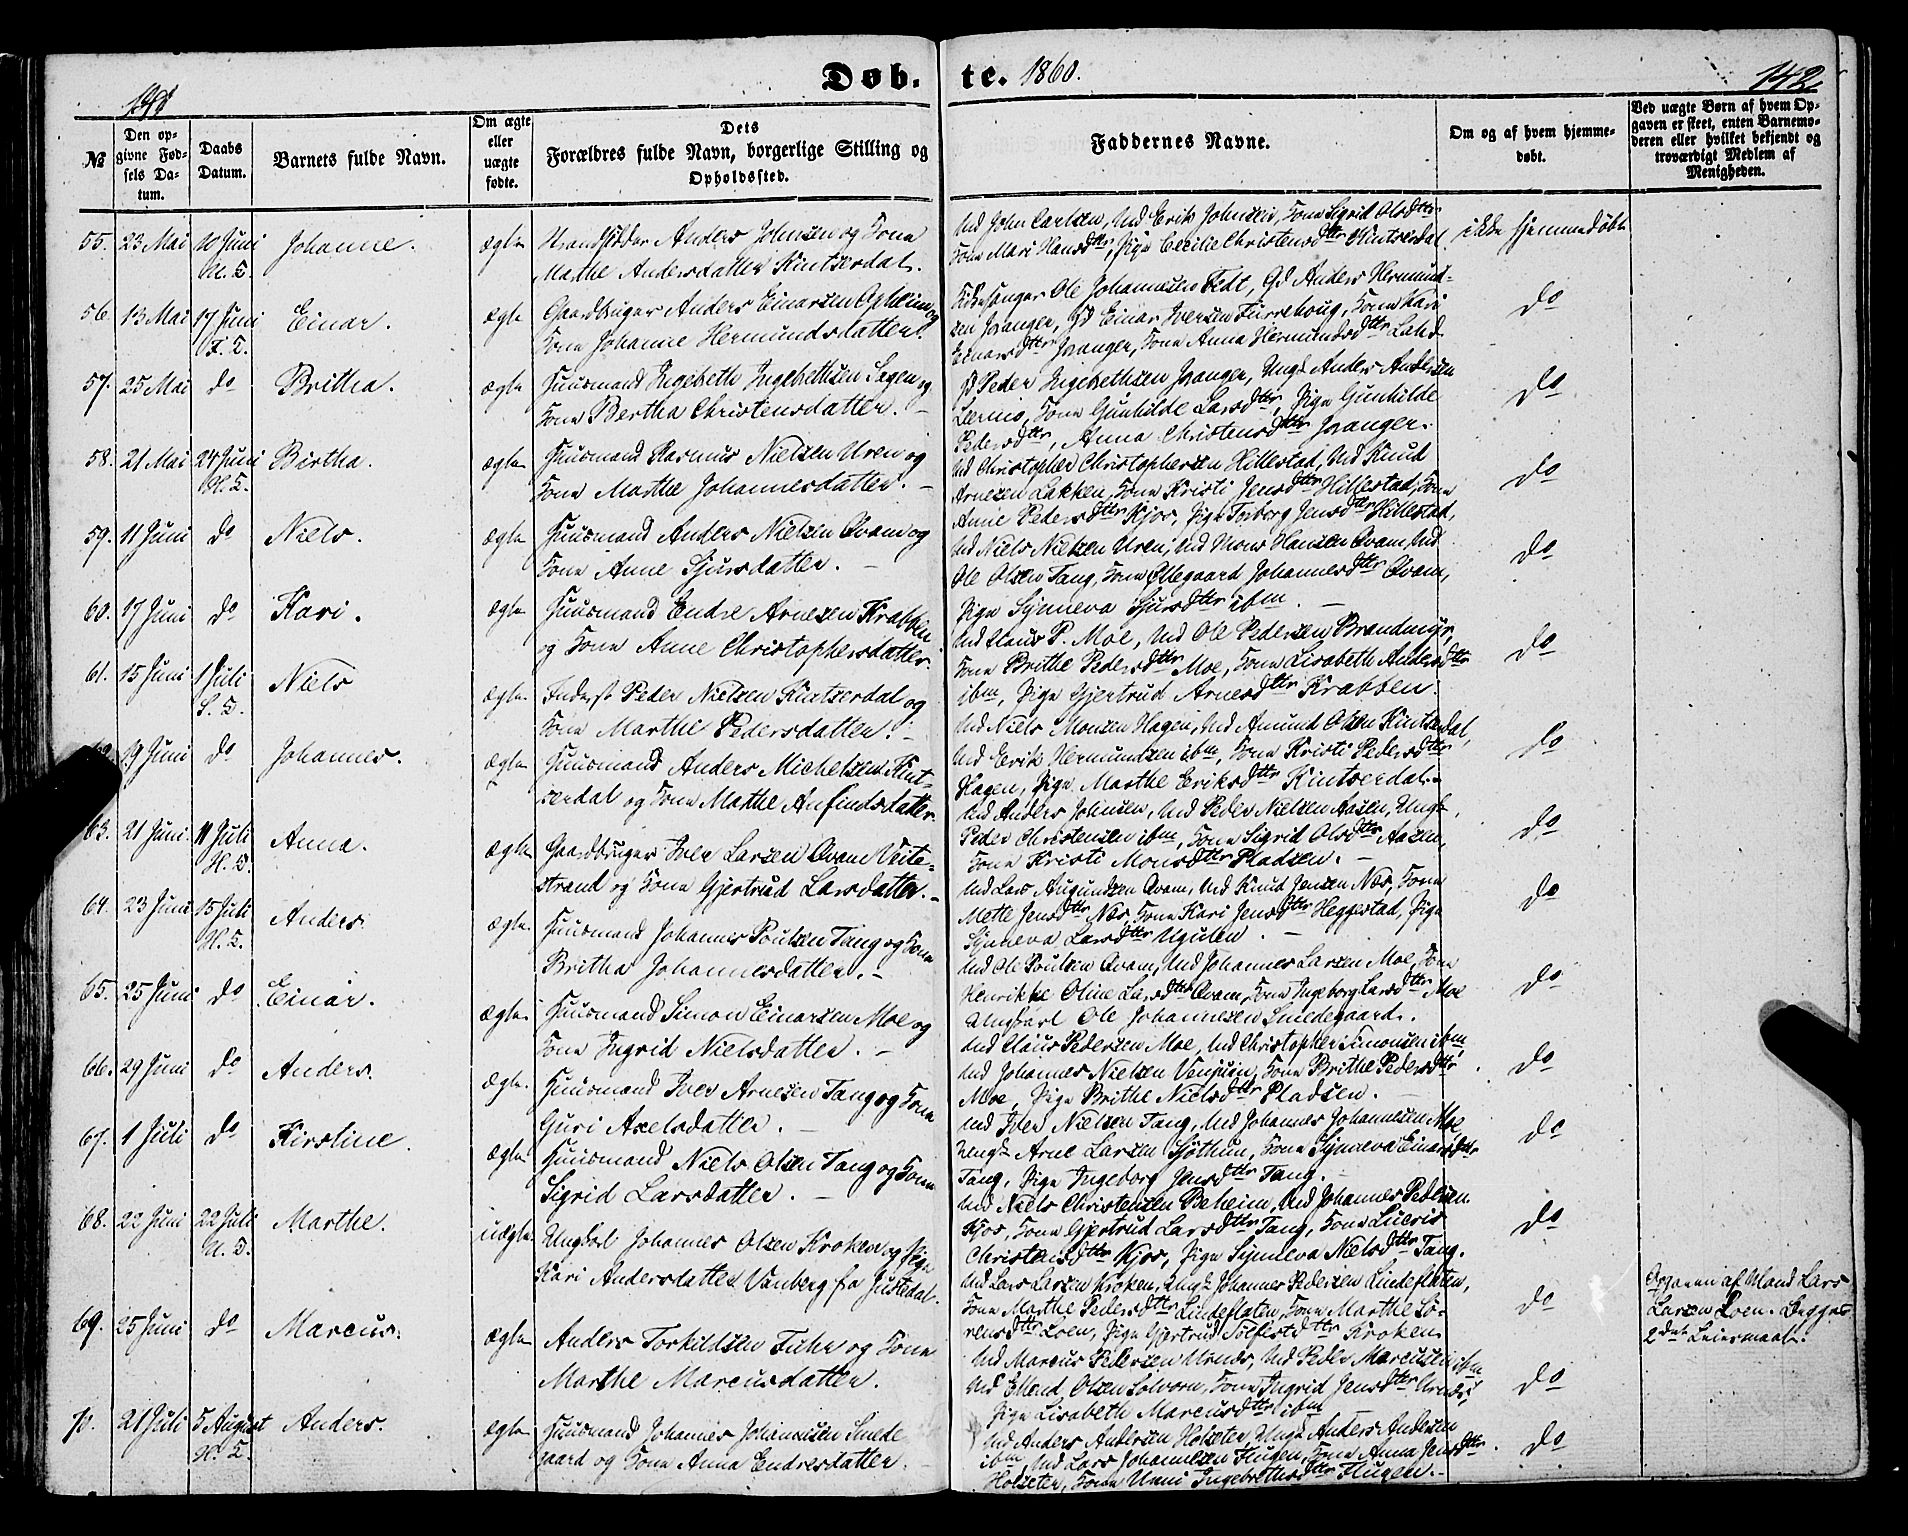 Døb. te. 1860.
142
№
Den opgivne Fødsels Datum.
Daabs Datum.
Barnets fulde Navn.
Om ægte eller uægte fødte.
Dets Forældres fulde Navn, borgerlige Stilling og Opholdssted.
Faddernes Navne.
Om og af hvem hjemmedøbt.
Ved uægte Børn af hvem Opgaven er skeet, enten Barnemoderen eller hvilket bekjendt og troværdigt Medlem af Menigheden.
55. 23 Mai 10 Juni Johanne. ægte Strandsidder Anders Johnsen og Kone
Marthe Andersdatter Kintserdal.
Ud John Carlsen, Ud Erik Johnsen, Kone Sigrid Olsdttr
Kone Mari Hansdttr, Pige Cecilie Christensdttr Kintserdal
ikke hjemmedøbt
56. 13 Mai 17 Juni Einar. ægte Gaardbruger Anders Einarsen Opheim og
Kone Johanne Hermundsdatter.
Kirkesanger Ole Johannesen Eidt, Gd Anders Hermund-
sen Jvanger, Gd Einar Iversen Furrehoug, Kone Kari
Einarsdttr Jvanger, Kone Anna Hermundsdttr Lahd
do
57. 25 Mai do Britha. ægte Huusmand Ingebeth Ingebethsen Sagen og
Kone Bertha Christensdatter. –
Gd Peder Ingebethsen Jvanger, Ungk Anders Andersen
Lerum, Kone Gunhilde Larsdttr, Pige Gunhilde
Pedersdttr, Anna Christensdttr Jvanger.
do
58. 21 Mai 24 Juni Birtha. ægte Huusmand Rasmus Nielsen Uren og
Kone Marthe Johannesdatter. –
Ud Christopher Christophersen Hillestad, Ud Knud
Arnesen Lakken, Kone Kristi Jensdttr Hillestad, Kone
Anne Pedersdttr Kjos, Pige Torborg Jensdttr Hillestad,
do
59. 11 Juni do Niels. ægte Huusmand Anders Nielsen Qvam og
Kone Anne Sjursdatter. –
Ud Niels Nielsen Uren, Ud Mons Hansen Qvam, Ud
Ole Olsen Tang, Kone Ellegaard Johannesdttr Qvam,
Pige Synneva Sjursdttr ibm. –
do
60. 17 Juni do Kari. ægte Huusmand Endre Arnesen Krabben
og Kone Anne Christophersdatter.
Ud Claus P. Moe, Ud Ole Pedersen Brandmyr,
Kone Brithe Pedersdttr Moe, Kone Lisabeth Andersdttr
ibm, Pige Gjertrud Arnesdttr Krabben.
do
61. 15 Juni 1 Juli Niels ægte Inderst Peder Nielsen Kintserdal og
Kone Marthe Pedersdatter. –
Ud Niels Monsen Hagen, Ud Amund Olsen Kintserdal,
Ud Erik Hermundsen ibm, Kone Kristi Pedersdttr
Hagen, Pige Marthe Eriksdttr Kintserdal.
do
19 Juni do Johannes. ægte Huusmand Anders Michelsen Kint-
serdal og Kone Marthe Anfindsdatter.
Ud Anders Johnsen, Ud Peder Nielsen Aasen, Ungk
Peder Christensen ibm, Kone Sigrid Olsdttr Aasen,
Kone Kristi Monsdttr Pladsen. –
do
63. 21 Juni. 11 Juli Anna. ægte Gaardbruger Iver Larsen Qvam Veite-
strand og Kone Gjertrud Larsdatter. –
Ud Lars Augundsen Qvam, Ud Knud Jensen Næs, Kone
Mette Jensdttr Næs, Kone Kari Jensdttr Heggestad, Pige
Synneva Larsdttr Ugulen. –
do
64. 23 Juni 15 Juli Anders. ægte Huusmand Johannes Poulsen Tang og Kone
Britha Johannesdatter. –
Ud Ole Poulsen Qvam, Ud Johannes Larsen Moe, Kone
Henrikke Oline Larsdttr Qvam, Kone Ingeborg Larsdttr Moe
Ungkarl Ole Johannesen Smedegaard.
do
65. 25 Juni do Einar. ægte Huusmand Simon Einarsen Moe og
Kone Ingrid Nielsdatter. –
Ud Claus Pedersen Moe, Ud Christopher Simonsen ibm
Ud Johannes Nielsen, Kone Brithe Pedersdttr
Moe, Pige Brithe Nielsdttr Pladsen.
do
66. 29 Juni do Anders. ægte. Huusmand Iver Arnesen Tang og Kone
Guri Axelsdatter. –
Ud Iver Nielsen Tang, Ud Johannes Johannesen Moe
Ungk Arne Larsen Sjøthun, Kone Synneva Einarsdttr
Tang, Pige Ingeborg Jensdttr Tang.
do
67. 1 Juli do Kirstine. ægte Huusmand Niels Olsen Tang og Kone
Sigrid Larsdatter. –
Ud Niels Christensen Beheim, Ud Johannes Pedersen
Kjos, Kone Gjertrud Larsdttr Tang, Kone Lucris
Christensdttr Kjos, Pige Synneva Nielsdttr Tang.
do
68. 22 Juni 22 Juli Marthe. uægte Ungkarl Johannes Olsen Kroken og Pige
Kari Andersdatter Vanberg fra Justedal.
Ud Lars Larsen Kroken, Ungk Johannes Pedersen Lindeflaten,
Kone Marthe Pedersdttr Lindeflaten, Kone Marthe Sø-
rensdttr Loen, Pige Gjertrud Solfestdttr Kroken
do
Opgaven af Mand Lars
Larsen Loen. Begges
2det Leiermaal.
69. 25 Juni do Marcus. ægte Anders Torkildsen Fuhr og Kone
Marthe Marcusdatter.
Ud Marcus Pedersen Urnæs, Ud Peder Marcussen ibm
Ud Ellend Olsen Solvorn, Kone Ingrid Jensdttr Urnæs
Pige Lisabeth Marcusdttr ibm
do
70. 21 Juli 5 August Anders. ægte Huusmand Johannes Johannesen Smede
gaard og Kone Anna Endresdatter. –
Ud Anders Andersen Holseter, Ungk Anders Andersen
ibm, Ud Lars Johannesen Flugen, Kone Anna Jensdttr
Holseter, Kone Unni Ingebrethsdttr Flugen. –
do